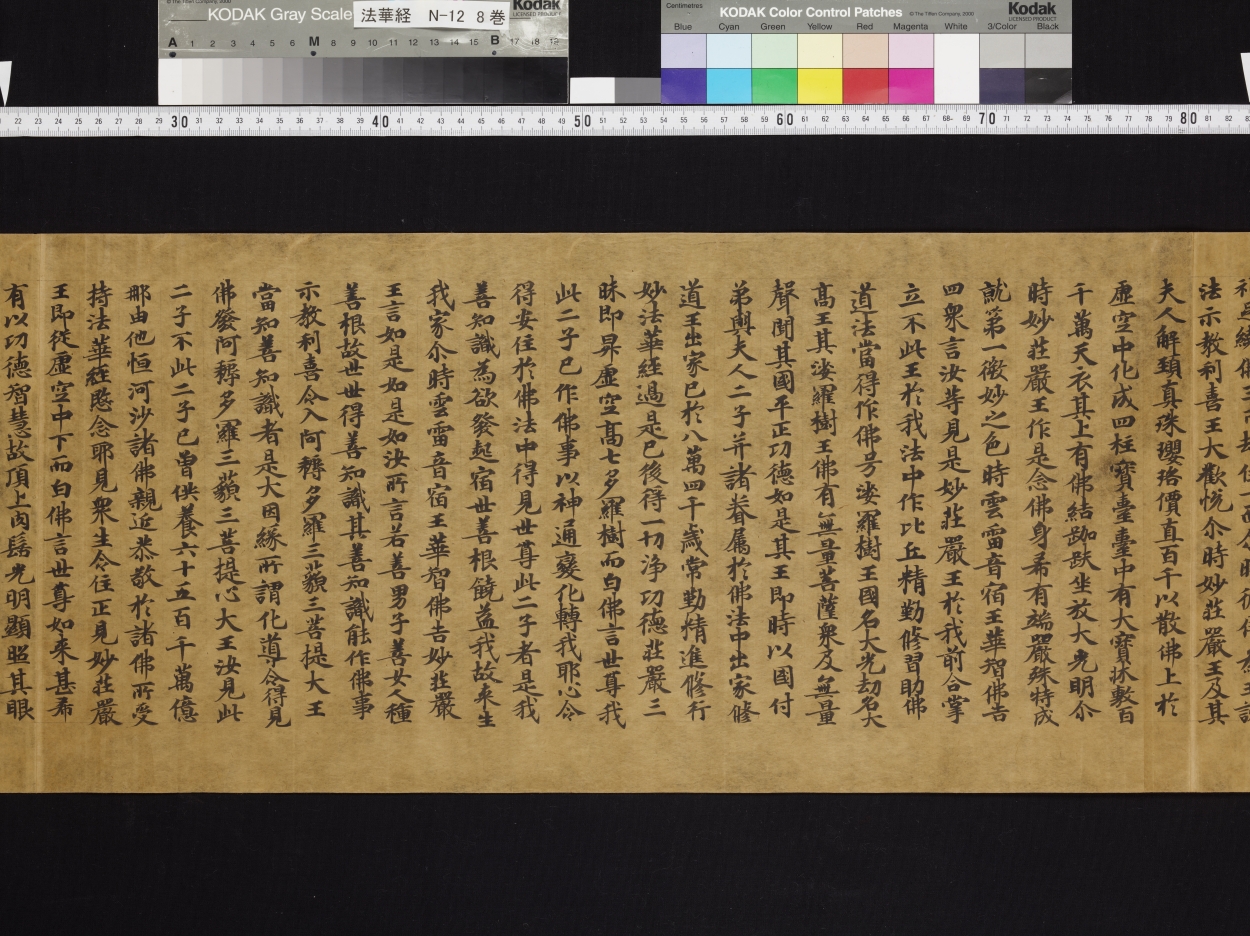 KODAK Gray Scale
法華経 N-12 8巻
Kodak
LICENSED PRODUCT
A 1 2 3 4 5 6 M 8 9 10 11 12 13 14 15 B 17 18 19
Centimetres
KODAK Color Control Patches
© The Tiffen Company, 2000
Kodak
LICENSED PRODUCT
Blue Cyan Green Yellow Red Magenta White 3/Color Black
22 23 24 25 26 27 28 29 30 31 32 33 34 35 36 37 38 39 40 41 42 43 44 45 46 47 48 49 50 51 52 53 54 55 56 57 58 59 60 61 62 63 64 65 66 67 68 69 70 71 72 73 74 75 76 77 78 79 80 81 82
法示教利喜王大歡悅尒時妙莊嚴王及其
夫人解頚真珠瓔珞價直百千以散佛上於
虛空中化成四柱寶臺臺中有大寶牀敷百
千萬天衣其上有佛結跏趺坐放大光明尒
時妙莊嚴王作是念佛身希有端嚴殊特成
就第一微妙之色時雲雷音宿王華智佛告
四衆言汝等見是妙莊嚴王於我前合掌
立不此王於我法中作比丘精勤修習助佛
道法當得作佛号娑羅樹王國名大光劫名大
髙王其娑羅樹王佛有無量菩薩衆及無量
聲聞其國平正功德如是其王即時以國付
弟與夫人二子并諸眷属於佛法中出家修
道王出家已於八萬四千歲常勤精進修行
妙法華経過是已後得一切浄功德莊嚴三
昧即昇虛空髙七多羅樹而白佛言世尊我
此二子已作佛事以神通變化轉我耶心令
得安住於佛法中得見世尊此二子者是我
善知識為欲發起宿世善根饒益我故来生
我家尒時雲雷音宿王華智佛告妙莊嚴
王言如是如是如汝所言若善男子善女人種
善根故世世得善知識其善知識能作佛事
示教利喜令入阿耨多羅三藐三菩提大王
當知善知識者是大因緣所謂化導令得見
佛發阿耨多羅三藐三菩提心大王汝見此
二子不此二子已曽供養六十五百千萬億
那由他恒河沙諸佛親近恭敬於諸佛所受
持法華經愍念耶見衆生令住正見妙莊嚴
王即從虛空中下而白佛言世尊如来甚希
有以功德智慧故頂上肉髻光明顯照其眼